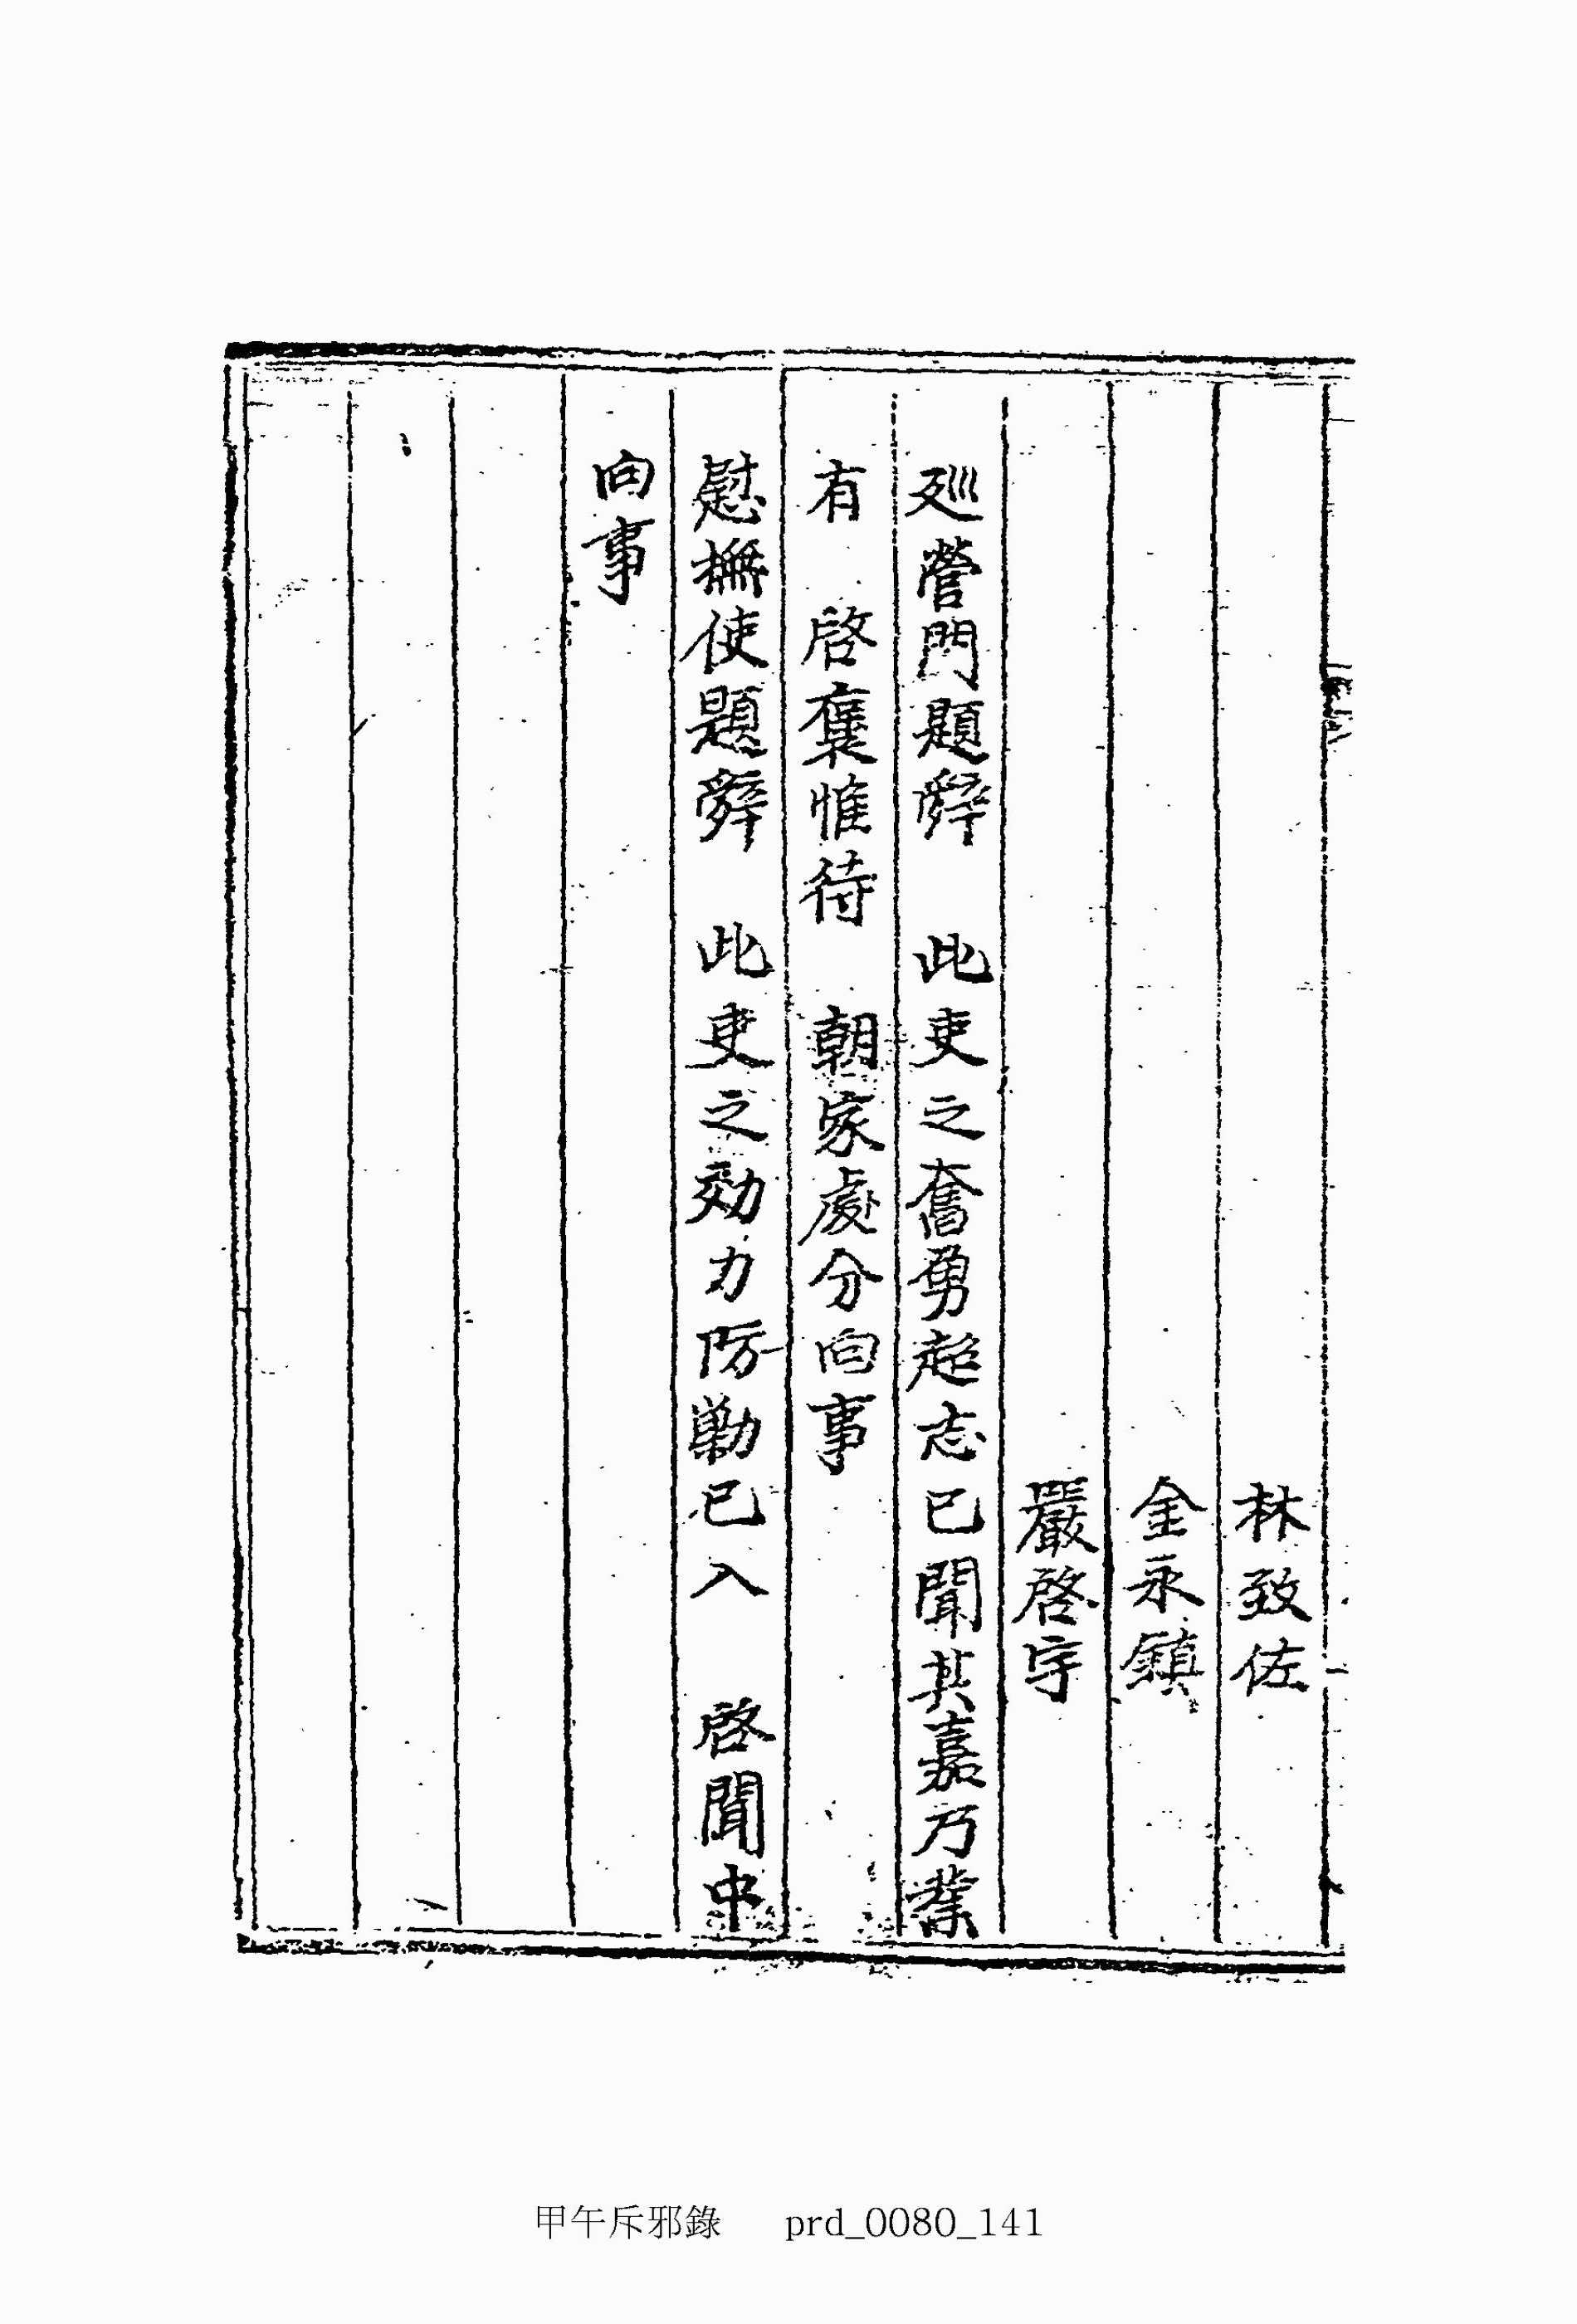 林致佐
金永鎮
嚴啓宇
巡營門題辭 此吏之奮勇趍志已聞其嘉乃業
有 啓褒惟待 朝家處分向事
慰撫使題辭 此吏之効力防勦已入 啓聞中
向事
甲午斥邪錄 prd_0080_141